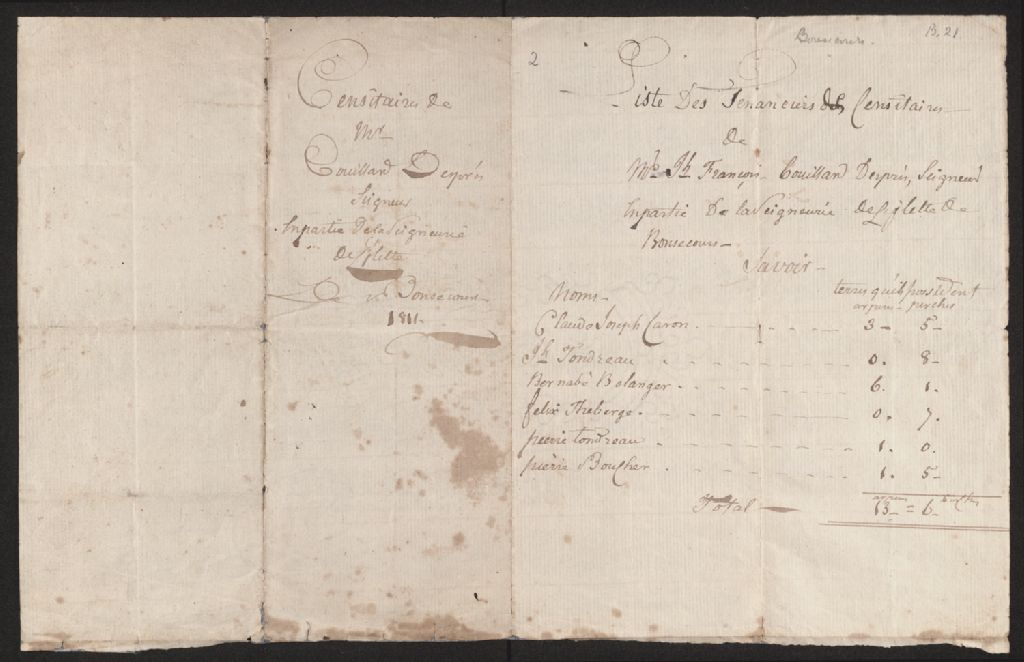 Censitaires de
Mr
Couillard Després
Seigneur
En partie De la Seigneurie
de Lislette
De Bonsecours
1811.
Bonsecours.
B. 21
2
Liste Des Tenanciers des Censitaires
de
Mr Jh François Couillard Després, Seigneur
En partie De la Seigneurie de Lislette de
Bonsecours
Savoir
Noms
terres qu'ils possedent
arpens perches
Claude Joseph Caron 3 5
Jh Tondreau 0. 8
Bernabé Belanger 6. 1.
felix Theberge 0. 7.
pierre tondreau 1. 0.
pierre Boucher 1. 5
Total
arpens
13 = 6 perches